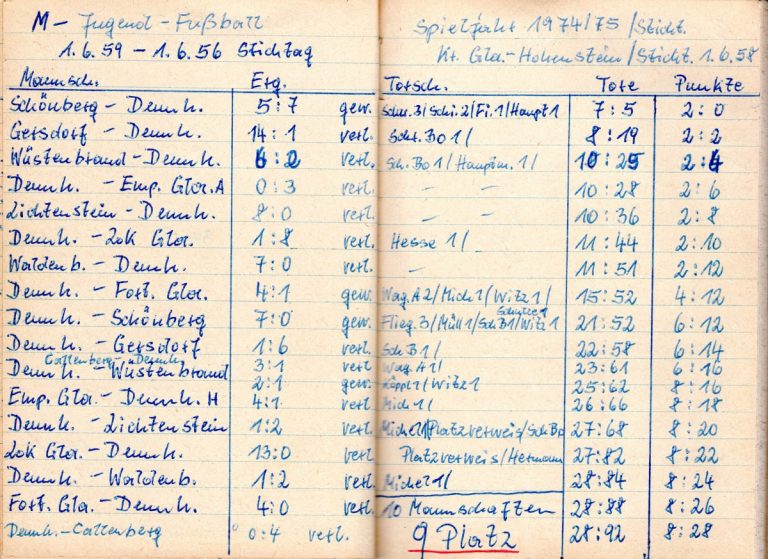 M- Jugend-Fußball Spieljahr 1974/75 /Sticht.
1.6.59 - 1.6.56 Stichtag Kr. Gla.-Hohenstein/Sticht. 1.6.58
Mannsch. Erg. Torsch. Tore Punkte
Schönberg - Dennh. 5:7 gew. Schu. 3/Schi. 2/Fi. 1/Haupt 1 7:5 2:0
Gersdorf - Dennh. 14:1 verl. Sch. Bo 1/ 8:19 2:2
Wüstenbrand - Dennh. 6:2 verl. Sch. Bo 1/Hauptm. 1/ 10:25 2:4
Dennh. - Emp. Gla. A 0:3 verl. - - 10:28 2:6
Lichtenstein - Dennh. 8:0 verl. - - 10:36 2:8
Dennh. - Lok Gla. 1:8 verl. Hesse 1/ 11:44 2:10
Waldenb. - Dennh. 7:0 verl. - 11:51 2:12
Dennh. - Fort. Gla. 4:1 gew. Wag. A 2/Mich 1/Witz 1/ 15:52 4:12
Dennh. - Schönberg 7:0 gew. Flieg. 3/Müll 1/Sch B 1/Witz 1 21:52 6:12
Dennh. - Gersdorf 1:6 verl. Sch B 1/ 22:58 6:14
Callenberg - Dennh.
Dennh. - Wüstenbrand 3:1 verl. Wag. A 1/ 23:61 6:16
2:1 gew. Läppl 1/Witz 1 25:62 8:16
Emp. Gla. - Dennh. H 4:1 verl. Mich 1/ 26:66 8:18
Dennh. - Lichtenstein 1:2 verl. Michel 1/Platzverweis/Sch Bo 27:68 8:20
Lok Gla. - Dennh. 13:0 verl. Platzverweis/Hermann 27:82 8:22
Dennh. - Waldenb. 1:2 verl. Michel 1/ 28:84 8:24
Fort. Gla. - Dennh. 4:0 verl. 10 Mannschaften 28:88 8:26
Dennh. - Callenberg 0:4 verl. 9 Platz 28:92 8:28